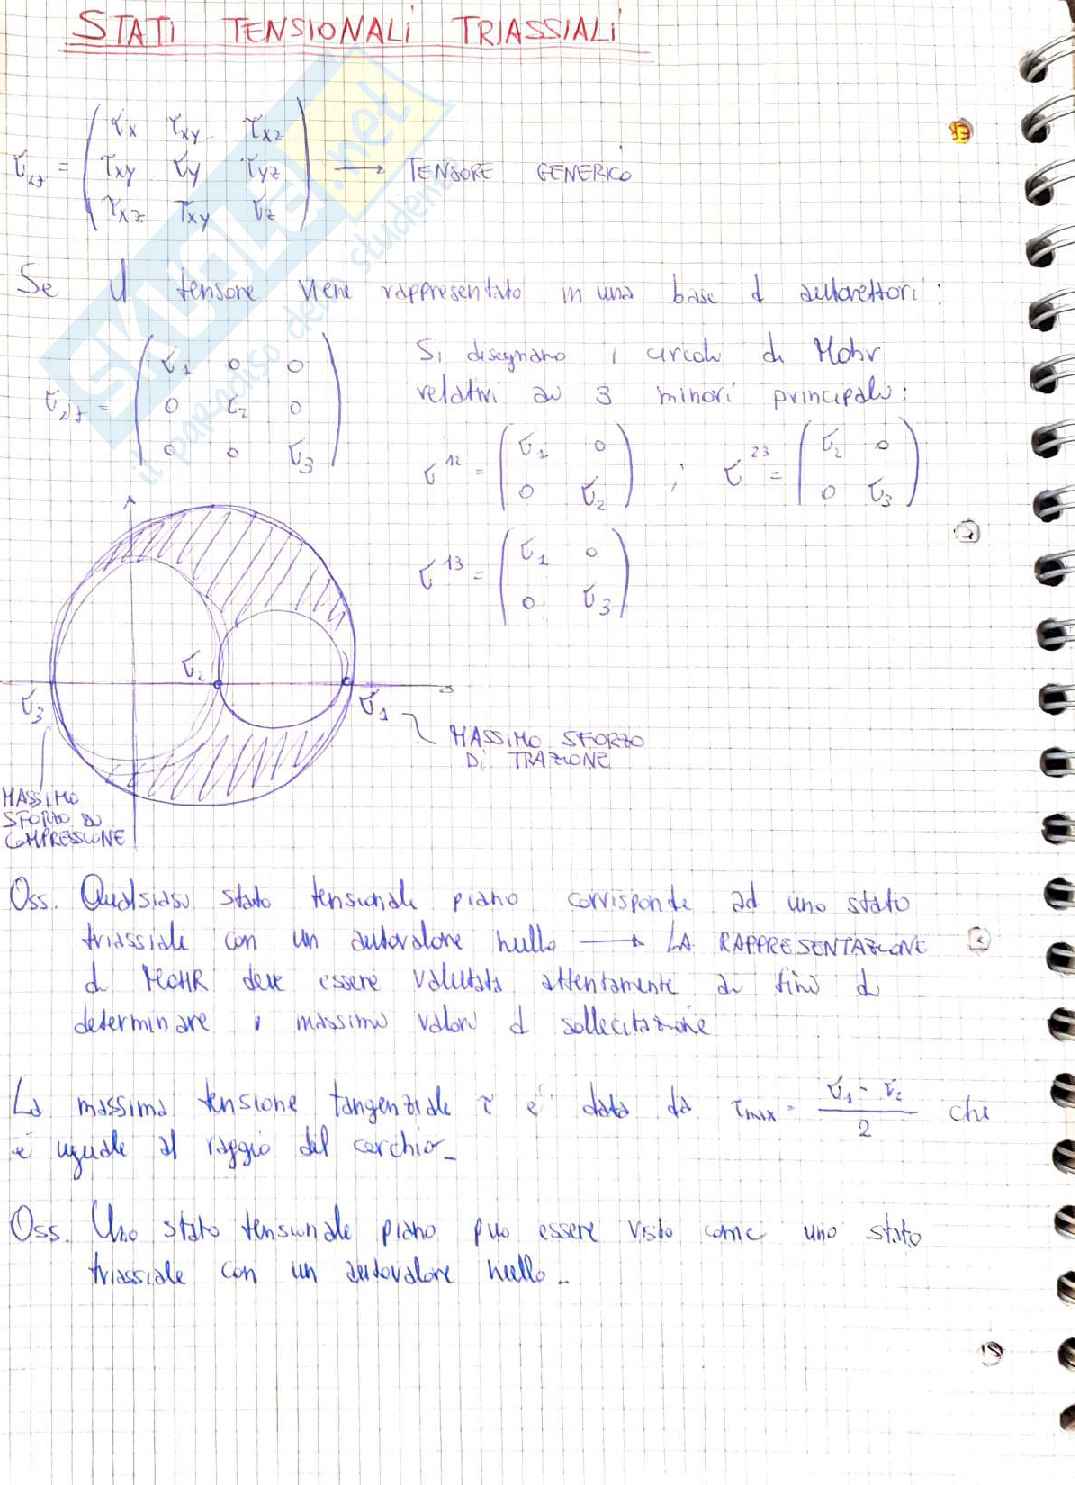 STATI TENSIONALI TRIASSIALI
σx τxy τxz
σij = τxy σy τyz → TENSORE GENERICO
τxz τxy σz
Se il tensore viene rappresentato in una base di autovettori:
σ1 0 0
σij = 0 σ2 0
0 0 σ3
Si disegnano i circoli di Mohr
relativi ai 3 minori principali:
σ^12 = (σ1 0
0 σ2) ; σ^23 = (σ2 0
0 σ3)
σ^13 = (σ1 0
0 σ3)
σ2
σ3
σ1
MASSIMO SFORZO
DI TRAZIONE
MASSIMO
SFORZO DI
COMPRESSIONE
Oss. Qualsiasi stato tensionale piano corrisponde ad uno stato
triassiale con un autovalore nullo → LA RAPPRESENTAZIONE
di MOHR deve essere valutata attentamente ai fini di
determinare i massimi valori di sollecitazione
La massima tensione tangenziale τ è data da τmax = σ1 - σ2 / 2 che
è uguale al raggio del cerchio_
Oss. Uno stato tensionale piano può essere visto come uno stato
triassiale con un autovalore nullo_
SKUOLA.net
il paradiso dello studente